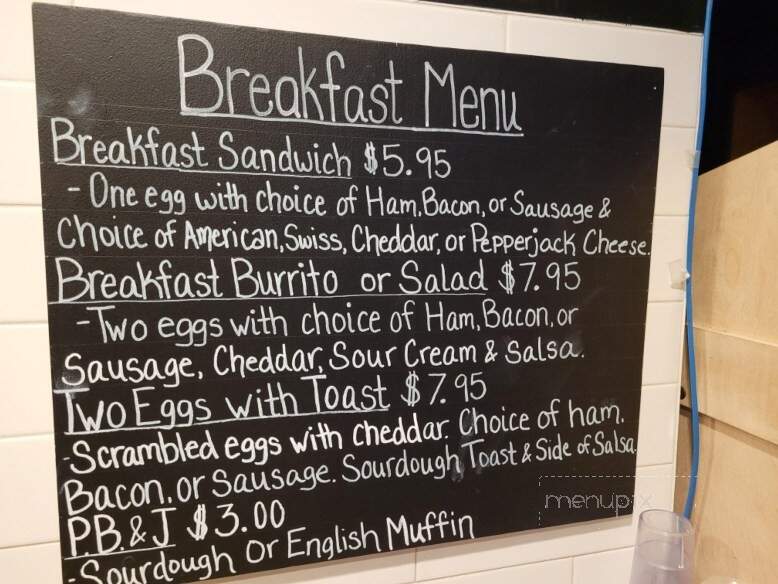 Breakfast Menu
Breakfast Sandwich $5.95
- One egg with choice of Ham, Bacon, or Sausage &
Choice of American, Swiss, Cheddar, or Pepperjack Cheese.
Breakfast Burrito or Salad $7.95
- Two eggs with choice of Ham, Bacon, or
Sausage, Cheddar, Sour Cream & Salsa.
Two Eggs with Toast $7.95
- Scrambled eggs with cheddar. Choice of ham.
Bacon, or Sausage. Sourdough Toast & Side of Salsa.
P.B. & J $3.00
- Sourdough or English Muffin
menupix